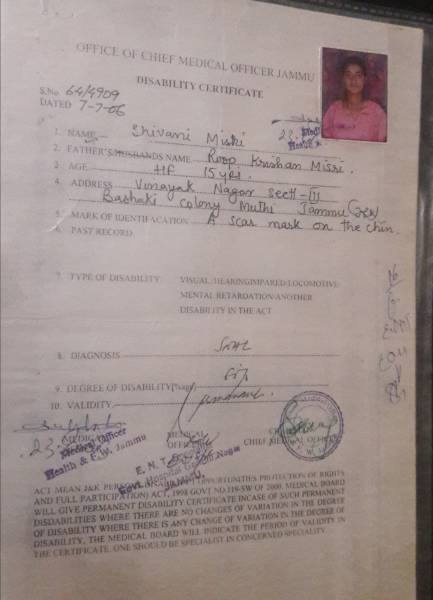 OFFICE OF CHIEF MEDICAL OFFICER JAMMU
DISABILITY CERTIFICATE
S.No. 64/4909
DATED 7-7-06
1. NAME Shivani Misri
2. FATHER'S/HUSBANDS NAME Roop Krishan Misri.
3. AGE 15 yrs.
4. ADDRESS Vinayak Nagar Sect-III
Bashaki Colony Muthi Jammu
5. MARK OF IDENTIFACATION A scar mark on the chin.
6. PAST RECORD
7. TYPE OF DISABILITY VISUAL/HEARINGIMPARED/LOCOMOTIVE/
MENTAL RETARDATION/ANOTHER
DISABILITY IN THE ACT
8. DIAGNOSIS
9. DEGREE OF DISABILITY
10. VALIDITY
MEDICAL
OFFICER
CHIEF MEDICAL OFFICER
Medical Officer
Health & F.W. Jammu
E. N. T.
ACT MEAN J&K PERSON OPPORTUNITIES PROTECTION OF RIGHTS
AND FULL PARTICIPATION) ACT, 1998 GOVT NO 319-SW OF 2000. MEDICAL BOARD
WILL GIVE PERMANENT DISABILITY CERTIFICATE INCASE OF SUCH PERMANENT
DISDABILITIES WHERE THERE ARE NO CHANGES OF VARIATION IN THE DEGREE
OF DISABILITY WHERE THERE IS ANY CHANGE OF VARIATION IN THE DEGREE OF
DISABILITY, THE MEDICAL BOARD WILL INDICATE THE PERIOD OF VALIDITY IN
THE CERTIFICATE. ONE SHOULD BE SPECIALIST IN CONCERNED SPECIALITY.